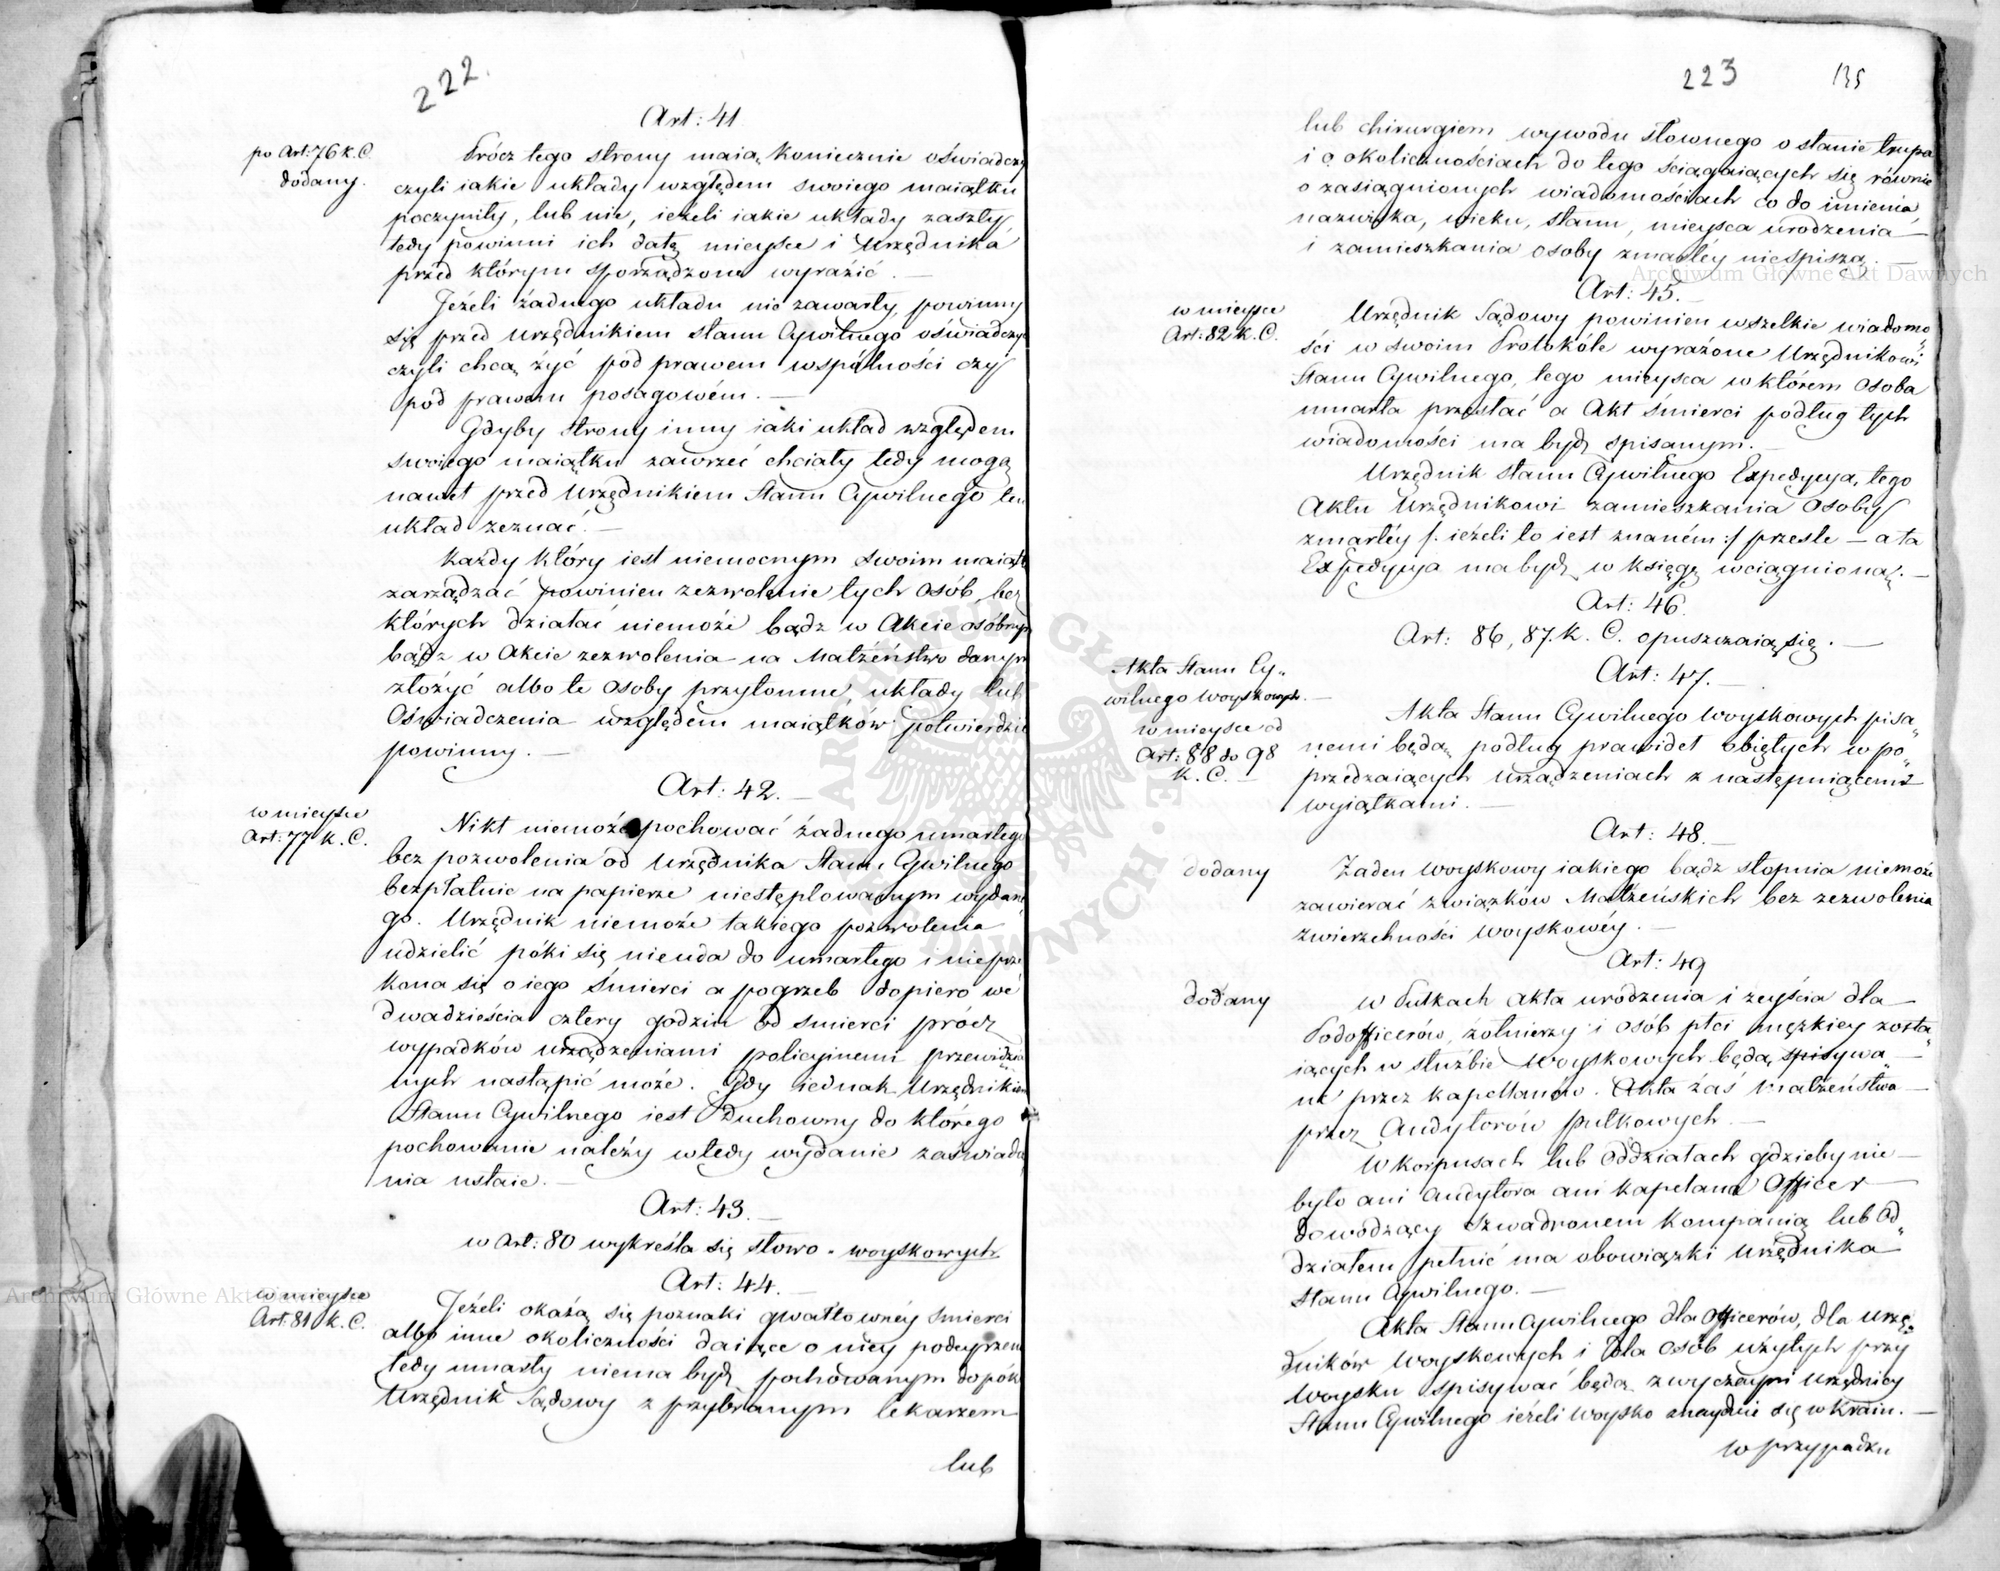 222.
Art: 41
po Art: 76 K. C.
dodany.
Prócz tego strony maią koniecznie oświadczy
czyli iakie układy względem swoiego maiątku
poczyniły, lub nie, ieżeli iakie układy zaszły
tedy powinni ich datę mieysce i Urzędnika
przed którym sporządzone wyrazić. —
Jeżeli żadnego układu nie zawarły, powinny
się przed Urzędnikiem Stanu Cywilnego oświadczy
czyli chcą żyć pod prawem wspólności czy
pod prawem posagowém. —
Gdyby strony inny iaki układ względem
swoiego maiątku zawrzeć chciały tedy mogą
nawet przed Urzędnikiem Stanu Cywilnego ten
układ zeznać. —
Każdy który iest niemocnym swoim maiątk
zarządzać powinien zezwolenie tych osób, bez
których działać niemoże bądz w Akcie osóbnym
bądz w Akcie zezwolenia na Małżeństwo danym
złożyć albo te osoby przytomne, układy lub
Oświadczenia względem maiątków potwierdzić
powinny. —
Art: 42. —
w mieysce
Art: 77 K. C.
Nikt niemoże pochować żadnego umarłego
bez pozwolenia od Urzędnika Stanu Cywilnego
bezpłatnie na papierze niestęplowanym wydane
go. Urzędnik niemoże takiego pozwolenia
udzielić póki się nieuda do umarłego i nieprze
kona się o iego śmierci a pogrzeb dopiero we
dwadzieścia cztery godzin od smierci prócz
wypadków urządzeniami policyinemi przewidzia
nych nastąpić może. Gdy iednak Urzędnikiem
Stanu Cywilnego iest Duchowny do którego
pochowanie należy wtedy wydanie zaświadcz
nia ustaie. —
Art: 43. —
w Art: 80 wykreśla się słowo - woyskowych
Art: 44. —
w mieysce
Art: 81 K. C.
Jeżeli okażą się poznaki gwałtownéy smierci
albo inne okoliczności daiące o niey podeyrzen
tedy umarły niema bydź pochowanym dopók
Urzędnik Sądowy z przybranym lekarzem
lub
223
135
lub chirurgiem wywodu słownego o stanie trupa
i o okolicznościach do tego ściągaiących się równie
o zasiągnionych wiadomościach co do imienia
nazwiska, wieku, stanu, mieysca urodzenia —
i zamieszkania osoby zmarłéy niespiszą. —
Art: 45. —
w mieysce
Art: 82 K. C.
Urzędnik Sądowy powinien wszelkie wiadomo„
ści w swoim Protokóle wyrażone Urzędnikowi
Stanu Cywilnego, tego mieysca w którém osoba
umarła przesłać a Akt śmierci podług tych
wiadomości ma bydź spisanym. —
Urzędnik Stanu Cywilnego Expedycyą tego
Aktu Urzędnikowi zamieszkania osoby
zmarłéy /: ieżeli to iest znaném :/ prześle — a ta
Expedycya ma bydź w księgę wciągnioną. —
Art: 46.
Art: 86, 87. K. C. opuszczaią się. —
Art: 47. —
Akta Stanu Cy„
wilnego Woyskowych. —
w mieysce od
Art: 88 do 98
K. C. —
Akta Stanu Cywilnego Woyskowych pisa„
nemi będą podług prawideł obiętych w po„
przedzaiących urządzeniach z następuiącemi
wyiątkami. —
Art: 48. —
dodany
Żaden woyskowy iakiego bądz stopnia niemoże
zawierać związków Małżeńskich bez zezwolenia
zwierzchności Woyskowéy. —
Art: 49
dodany
w Pułkach akta urodzenia i zeyścia dla —
Podofficerów, żołnierzy i osób płci męzkiey zosta„
iących w służbie Woyskowych będą spisywa„
ne przez kapellanów. Akta zaś małżeństwa —
przez Audytorów pułkowych. —
W korpusach lub Oddziałach gdzieby nie —
było ani Audytora ani Kapelana Officer —
dowodzący Szwadronem Kompanią lub Od„
działem pełnić ma obowiązki Urzędnika
Stanu Cywilnego. —
Akta Stanu Cywilnego dla Officerów, dla Urzę„
dników Woyskowych i dla osób użytych przy
Woysku spisywać będą zwyczayni Urzędnicy
Stanu Cywilnego ieżeli Woysko znayduie się w Kraiu. —
w przypadku
Archiwum Główne Akt Dawnych